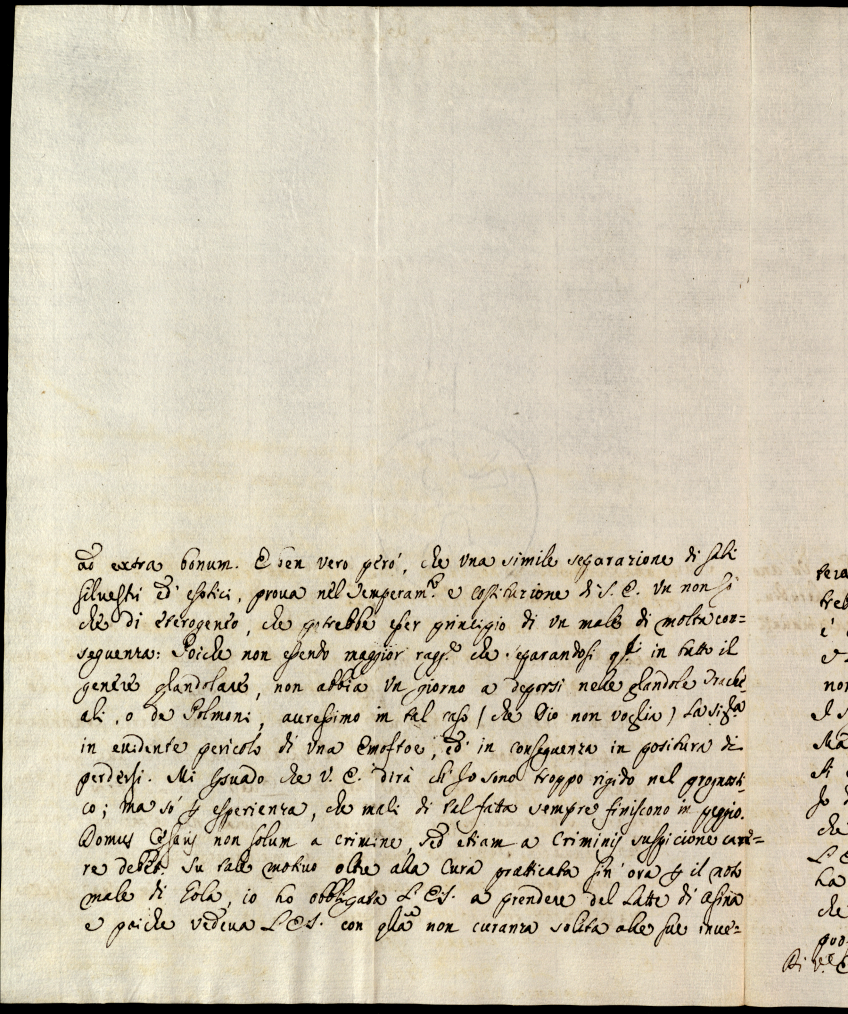 ad extra bonum. È ben vero però, che vna simile separazione di sali
siluestri ed' esotici, proua nel Temperam.to e costituzione di S. E. vn non sò
che di eterogeneo, che potrebbe esser principio di vn male di molta con=
seguenza: Poiche non essendo maggior rag.e che separandosi q.sti in tutto il
genere glandolare, non abbia vn giorno a deporsi nelle glandole trache=
ali, o de Polmoni, auressimo in tal caso (che Dio non voglia) La Sig.ra
in euidente pericolo di vna Emoftoe, ed' in conseguenza in positura di
perdersi. Mi suado che V. E. dirà ch' Io sono troppo rigido nel prognosti=
co; ma sò p esperienza, che mali di tal fatta sempre finiscono in peggio.
Domus Cesaris non solum a crimine, sed etiam a Criminis suspicione care=
re debet. Su tale motiuo oltre alla Cura pratticata sin' ora p il noto
male di Gola, io ho obbligata L' E. S. a prendere del Latte di Asina
e poiche vedeua L' E. S. con q.lla non curanza solita alle sue inue=
tera
treb
è
non
Ma
che
La
che
quo
Di V.E